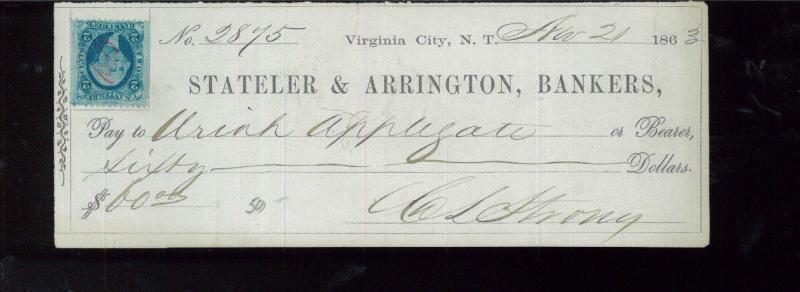 No. 2875 Virginia City, N. T. Nov 21 1863
STATELER & ARRINGTON, BANKERS,
Pay to Uriah Applegate or Bearer,
Sixty Dollars.
$60.00 50 C L Strong